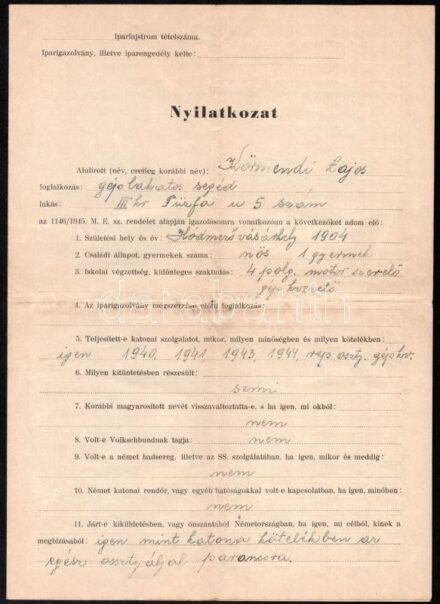 Iparlajstrom tételszáma.
Iparigazolvány, illetve iparengedély kelte:
Nyilatkozat
Alulírott (név, esetleg korábbi név): Körmendi Lajos
foglalkozás: géplakatos segéd
lakás: III ker Fűzfa u 5 szám
az 1146/1945. M. E. sz. rendelet alapján igazolásomra vonatkozóan a következőket adom elő:
1. Születési hely és év: Hódmezővásárhely 1904
2. Családi állapot, gyermekek száma: nős 1 gyermek
3. Iskolai végzettség, különleges szaktudás: 4 polg. motor szerelő
gépkezelő
4. Az iparigazolvány megszerzése előtti foglalkozás:
5. Teljesített-e katonai szolgálatot, mikor, milyen minőségben és milyen kötelékben:
igen 1940, 1941, 1943, 1944, rep. oszt. gépkv.
6. Milyen kitüntetésben részesült:
semi
7. Korábbi magyarosított nevét visszaváltoztatta-e, s ha igen, mi okból:
nem
8. Volt-e Volkschbundnak tagja: nem
9. Volt-e a német hadsereg, illetve az SS. szolgálatában, ha igen, mikor és meddig:
nem
10. Német katonai rendőr, vagy egyéb hatóságokkal volt-e kapcsolatban, ha igen, minőben:
nem
11. Járt-e kiküldetésben, vagy önszántából Németországban, ha igen, mi célból, kinek a
megbízásából: igen mint katona kötelékben az
egész osztályal parancsra.
darabanth.com